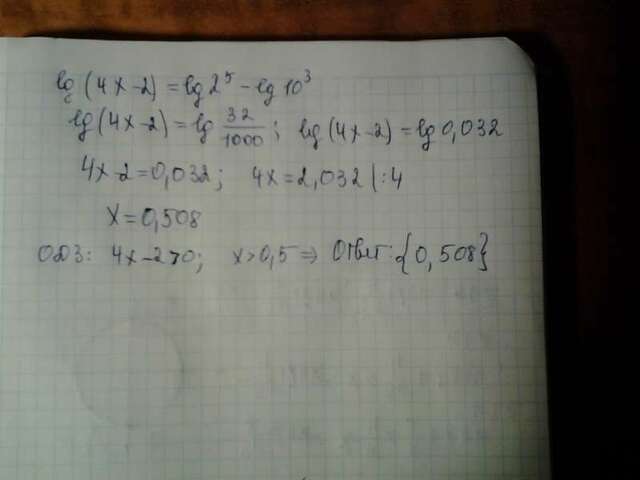 lg(4x-2)=lg2⁵-lg10³
lg(4x-2)=lg 32/1000; lg(4x-2)=lg0,032
4x-2=0,032; 4x=2,032 |:4
x=0,508
ОДЗ: 4x-2>0; x>0,5 ⇒ Ответ: {0,508}